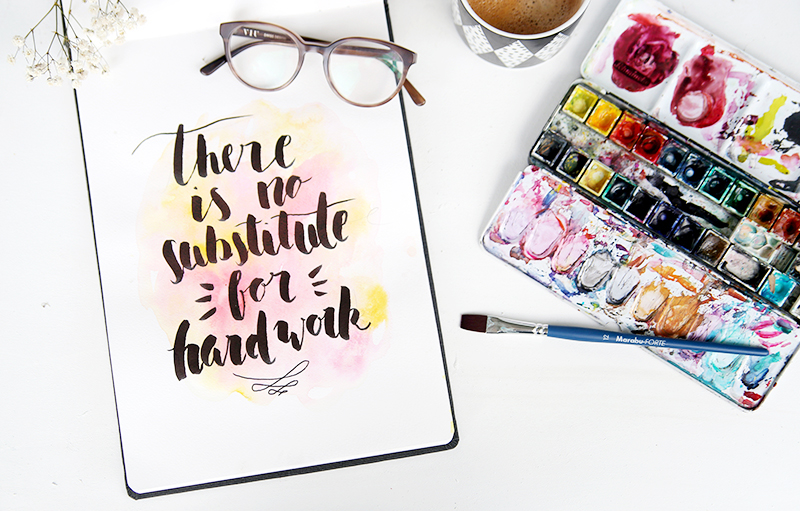 there
is no
substitute
for
hard work
12 Marabu FORTE